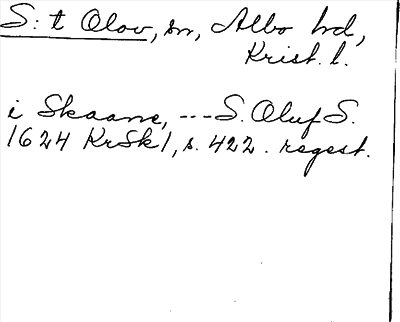 S:t Olov, sn, Albo hd,
Krist. l.
i Skaane, --- S. Oluf S.
1624 KrSk1, s. 422. regest.